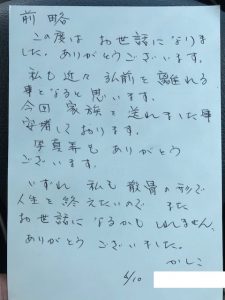 前略
この度は お世話になりま
した。ありがとうございます。
私も近々 弘前を離れる
事となると思います。
今回 家族を送れました事
安堵しております。
写真等も ありがとう
ございます。
いずれ 私も 散骨の形で
人生を終えたいので また
お世話になるかも しれません。
ありがとう ございました。
かしこ
6/10